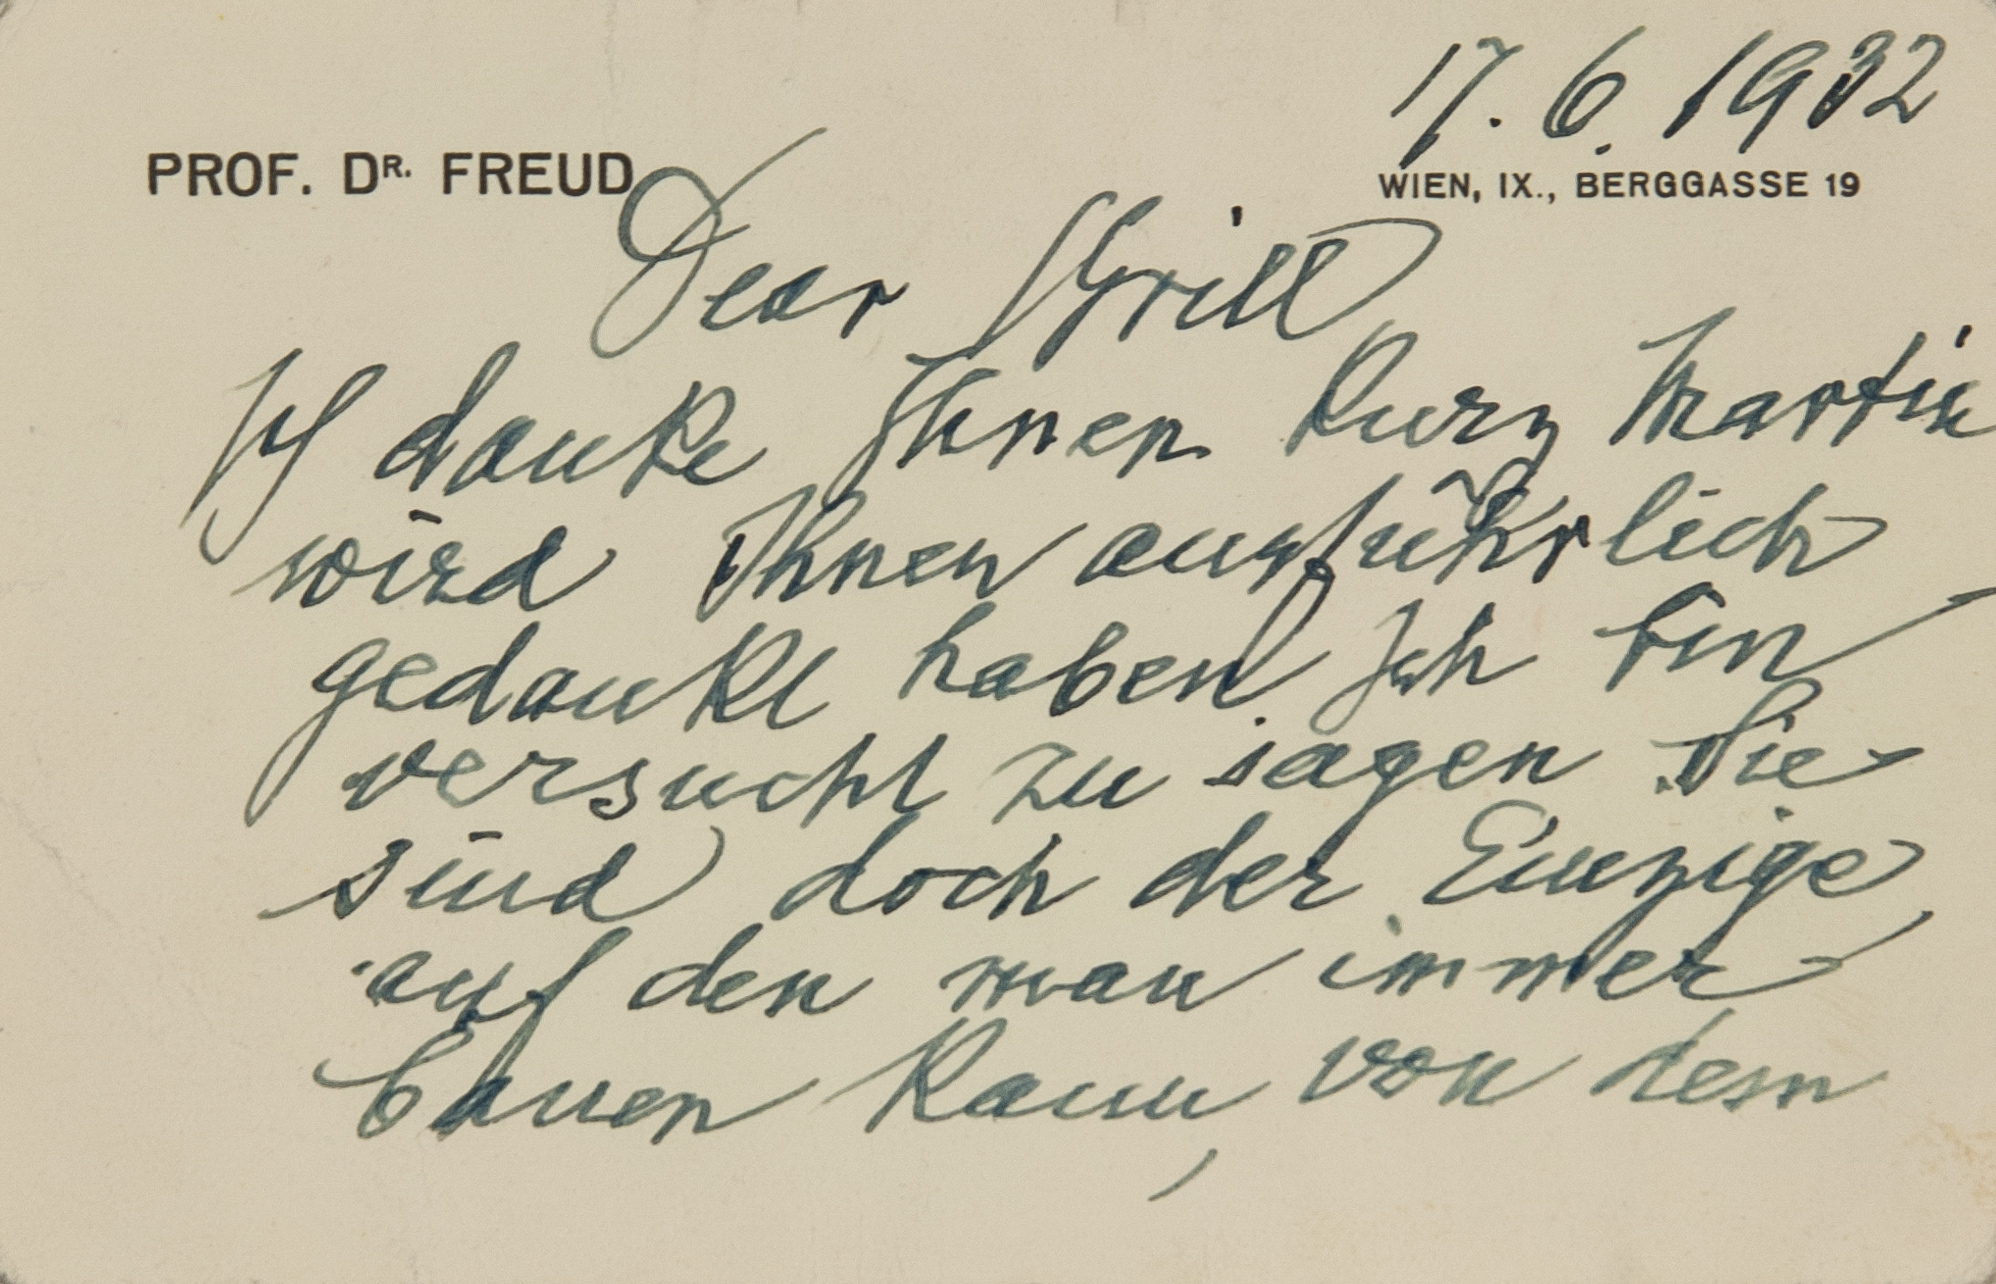 17. 6. 1932
PROF. DR. FREUD
WIEN, IX., BERGGASSE 19
Dear Brill
Ich danke Ihnen kurz Martin
wird Ihnen ausführlich
gedankt haben. Ich bin
versucht zu sagen Sie
sind doch der Einzige,
auf den man immer
bauen kann, von dem